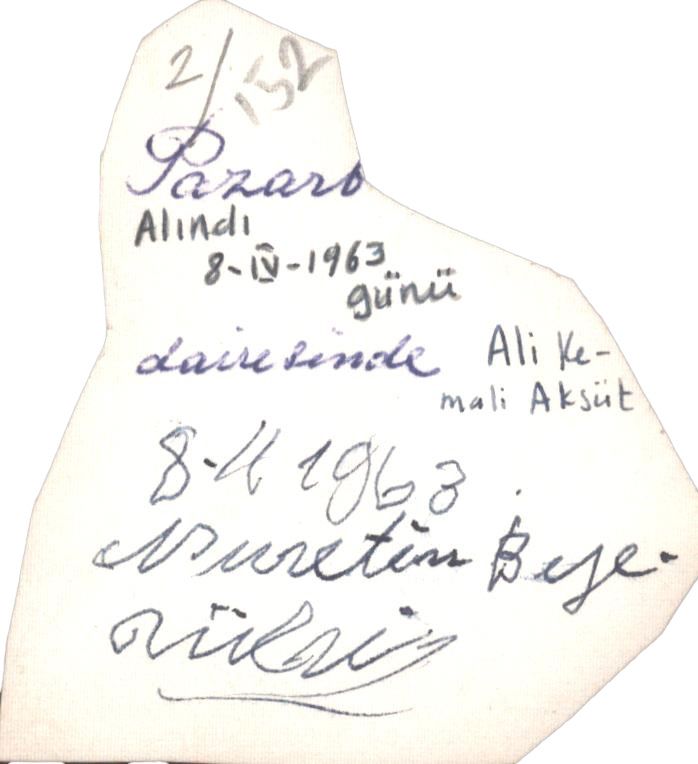 2/152
Pazarı
Alındı
8-IV-1963
günü
dairesinde
Ali Ke-
mali Aksüt
8-4 1963
Nuretin Beye.